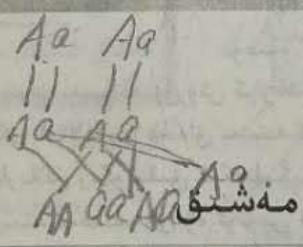 Aa Aa
Aa Aa
AA aa Aa Aa
مەشق